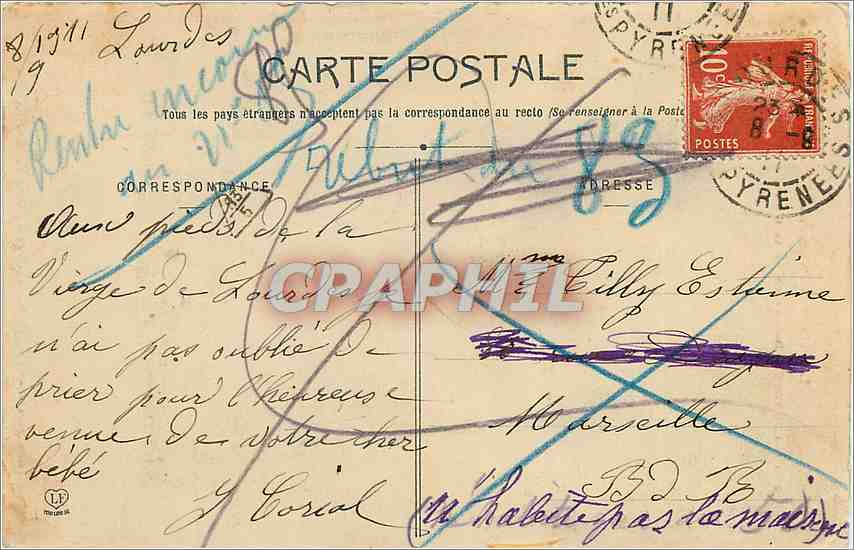 8/9 1911 Lourdes
CARTE POSTALE
Tous les pays étrangers n'acceptent pas la correspondance au recto (Se renseigner à la Poste
Rentré inconnu
au
Rebut du 89
CORRESPONDANCE
ADRESSE
Aux pieds de la
Vierge de Lourdes je
n'ai pas oublié de
prier pour l'heureuse
venue de votre cher
bébé
Mme Tilly Estienne
Marseille
Bd
(N'habite pas la maison)
CPARHIL
POSTES
10c
PYRENEES
PYRENEES
LF